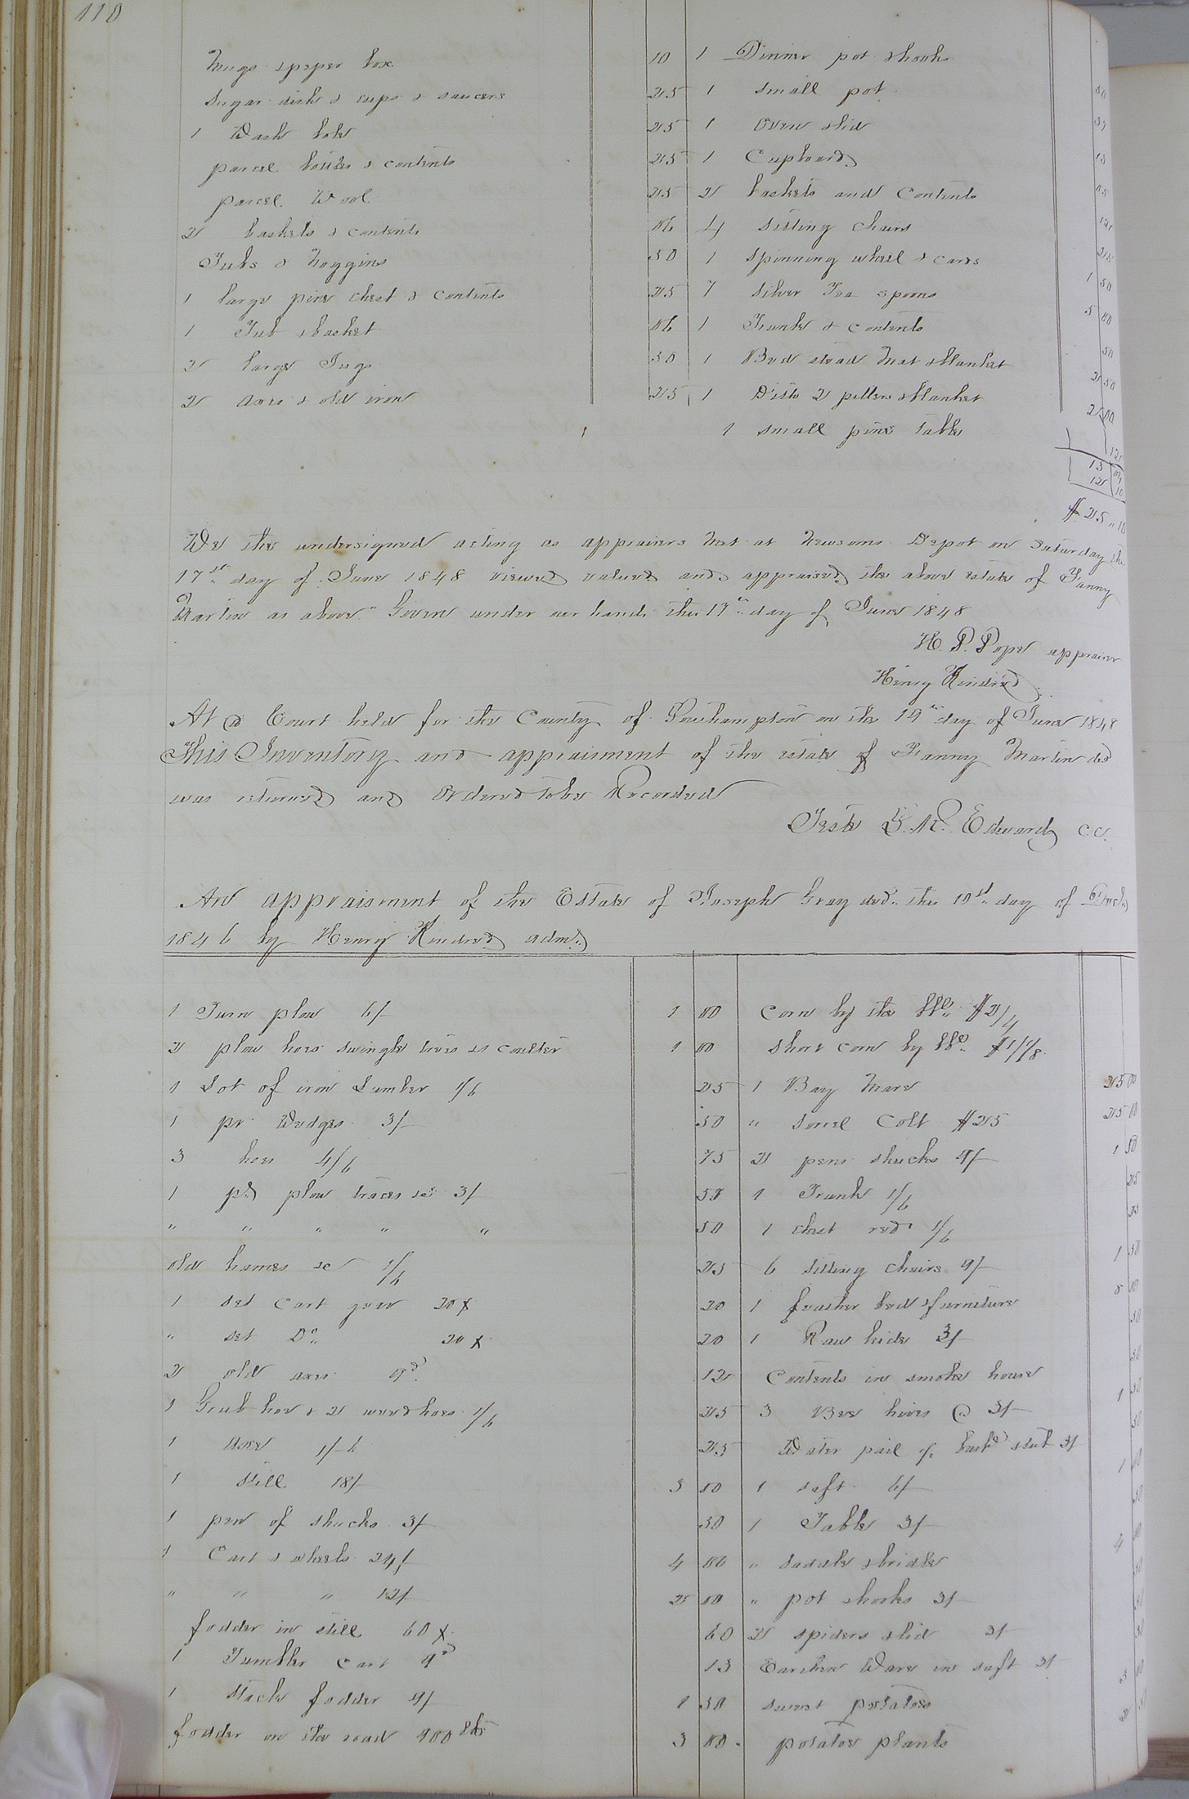 118
Mugs & peper box 10 1 Dinner pot & hooks
Sugar dish & cups & saucers 25 1 small pot
1 Wash tub 25 1 Oven & lid
parcel bottles & contents 25 1 Cupboard
parcel Wool 25 2 baskets and Contents
2 baskets & contents 06 4 sitting chairs
Tubs & Noggins 50 1 spinning wheel & cards 1 50
1 large pine chest & contents 25 7 silver Tea spoons 5 00
1 Tub & basket 06 1 Trunk & contents 50
2 large Jugs 50 1 Bed stead Mat & blanket 2 50
2 axes & old iron 25 1 Ditto 2 pillows & blanket 2 00
1 small pine table 12
13
12 10
$25 " 10
We the undersigned acting as appraisers met at Newsoms Depot on Saturday the
17th day of June 1848 viewed valued and appraised the above estate of Fanny
Martin as above Given under our hands this 17th day of June 1848
H. P. Pope appraiser
Henry Kindred
At a Court held for the County of Southampton on the 19th day of June 1848
This Inventory and appraisment of the estate of Fanny Martin decd
was returned and Ordered to be Recorded
Teste L. R. Edwards C.C.
An appraisment of the Estate of Joseph Gray decd the 10th day of
1846 by Henry Kindred admr
1 Turn plow 6/ 1 00 Corn by the bbl $2/
2 plow hoes swingle trees & coulter 1 00 Short corn by bbl
1 Lot of iron Lumber 1/6 25 1 Bay Mare 25 00
1 pr Wedges 3/ 50 " Sorrel Colt $25 25 00
3 hoes 4/6 75 2 pens shucks 9/ 1 50
1 pr plow traces &c 3/ 50 1 Trunk 1/6 25
" " " " " 50 1 chest red 1/6 25
old hames &c 1/6 25 6 sitting chairs 9/ 1 50
1 set Cart gear 20 20 1 feather bed & furniture 8 00
" set Do 20 20 1 Raw hide 3/ 50
2 old axes 9d 12 Contents in smoke house 50
1 Grub hoe & 2 weed hoes 1/6 25 3 Bee hives @ 3/ 1 50
1 axe 1/6 25 Water pail 3/ 50
1 Still 18/ 3 00 1 safe 6/ 1 00
1 pen of shucks 3/ 50 1 Table 3/ 50
1 Cart & wheels 24/ 4 00 " saddle & bridle 4 00
" " " 12/ 2 00 " pot & hooks 3/ 50
fodder in still 60 60 2 spiders & lid 3/ 50
1 Tumbler Cart 9d 13 Earthen Ware in safe 3/ 50
1 Stack fodder 9/ 1 50 sweet potatoes 3 00
fodder on the road 900 lbs 3 00 potatoe plants